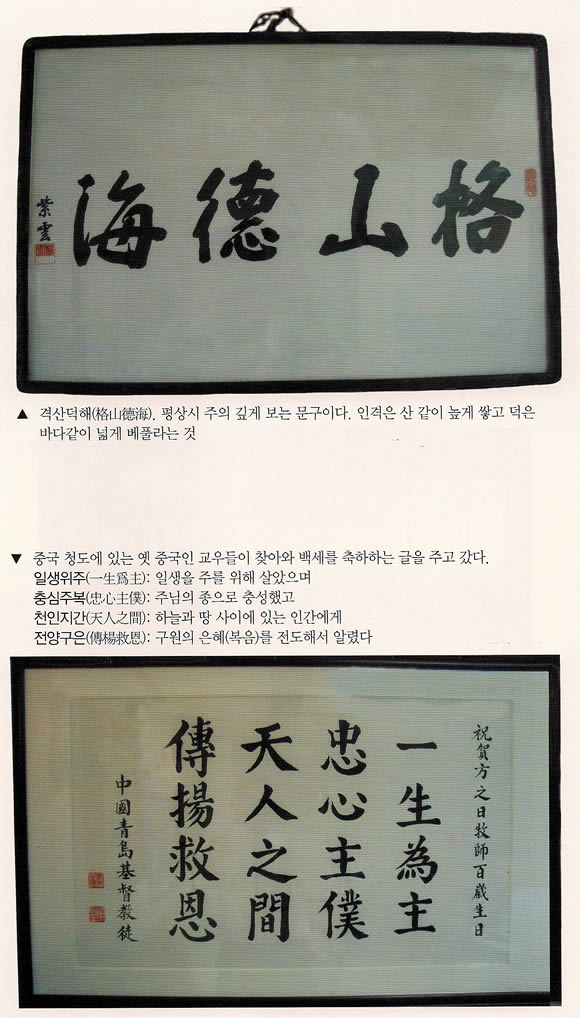 格山德海
紫雲
▲ 격산덕해(格山德海). 평상시 주의 깊게 보는 문구이다. 인격은 산 같이 높게 쌓고 덕은
바다같이 넓게 베풀라는 것
▼ 중국 청도에 있는 옛 중국인 교우들이 찾아와 백세를 축하하는 글을 주고 갔다.
일생위주(一生爲主): 일생을 주를 위해 살았으며
충심주복(忠心主僕): 주님의 종으로 충성했고
천인지간(天人之間): 하늘과 땅 사이에 있는 인간에게
전양구은(傳楊救恩): 구원의 은혜(복음)를 전도해서 알렸다
祝賀方之日牧師百歲生日
一生為主
忠心主僕
天人之間
傳揚救恩
中國青島基督教徒